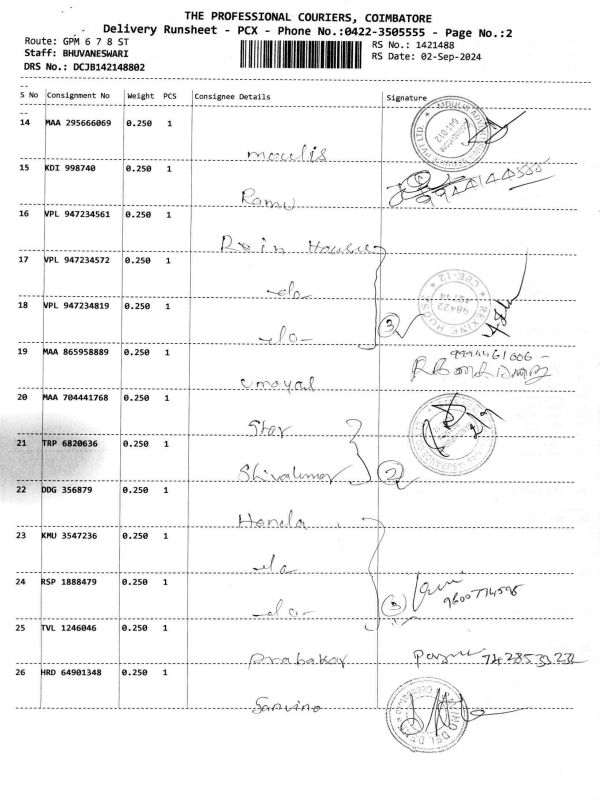 THE PROFESSIONAL COURIERS, COIMBATORE
Delivery Runsheet - PCX - Phone No.:0422-3505555 - Page No.:2
Route: GPM 6 7 8 ST
RS No.: 1421488
Staff: BHUVANESWARI
RS Date: 02-Sep-2024
DRS No.: DCJB142148802
S No Consignment No Weight PCS Consignee Details Signature
14 MAA 295666069 0.250 1
moulis
15 KDI 998740 0.250 1
Ramu
16 VPL 947234561 0.250 1
17 VPL 947234572 0.250 1
-do-
18 VPL 947234819 0.250 1
-do- 3
19 MAA 865958889 0.250 1
umayal
20 MAA 704441768 0.250 1
Star
21 TRP 6820636 0.250 1
2
22 DDG 356879 0.250 1
Honda
23 KMU 3547236 0.250 1
24 RSP 1888479 0.250 1
-do- 3
25 TVL 1246046 0.250 1
prabakar
26 HRD 64901348 0.250 1